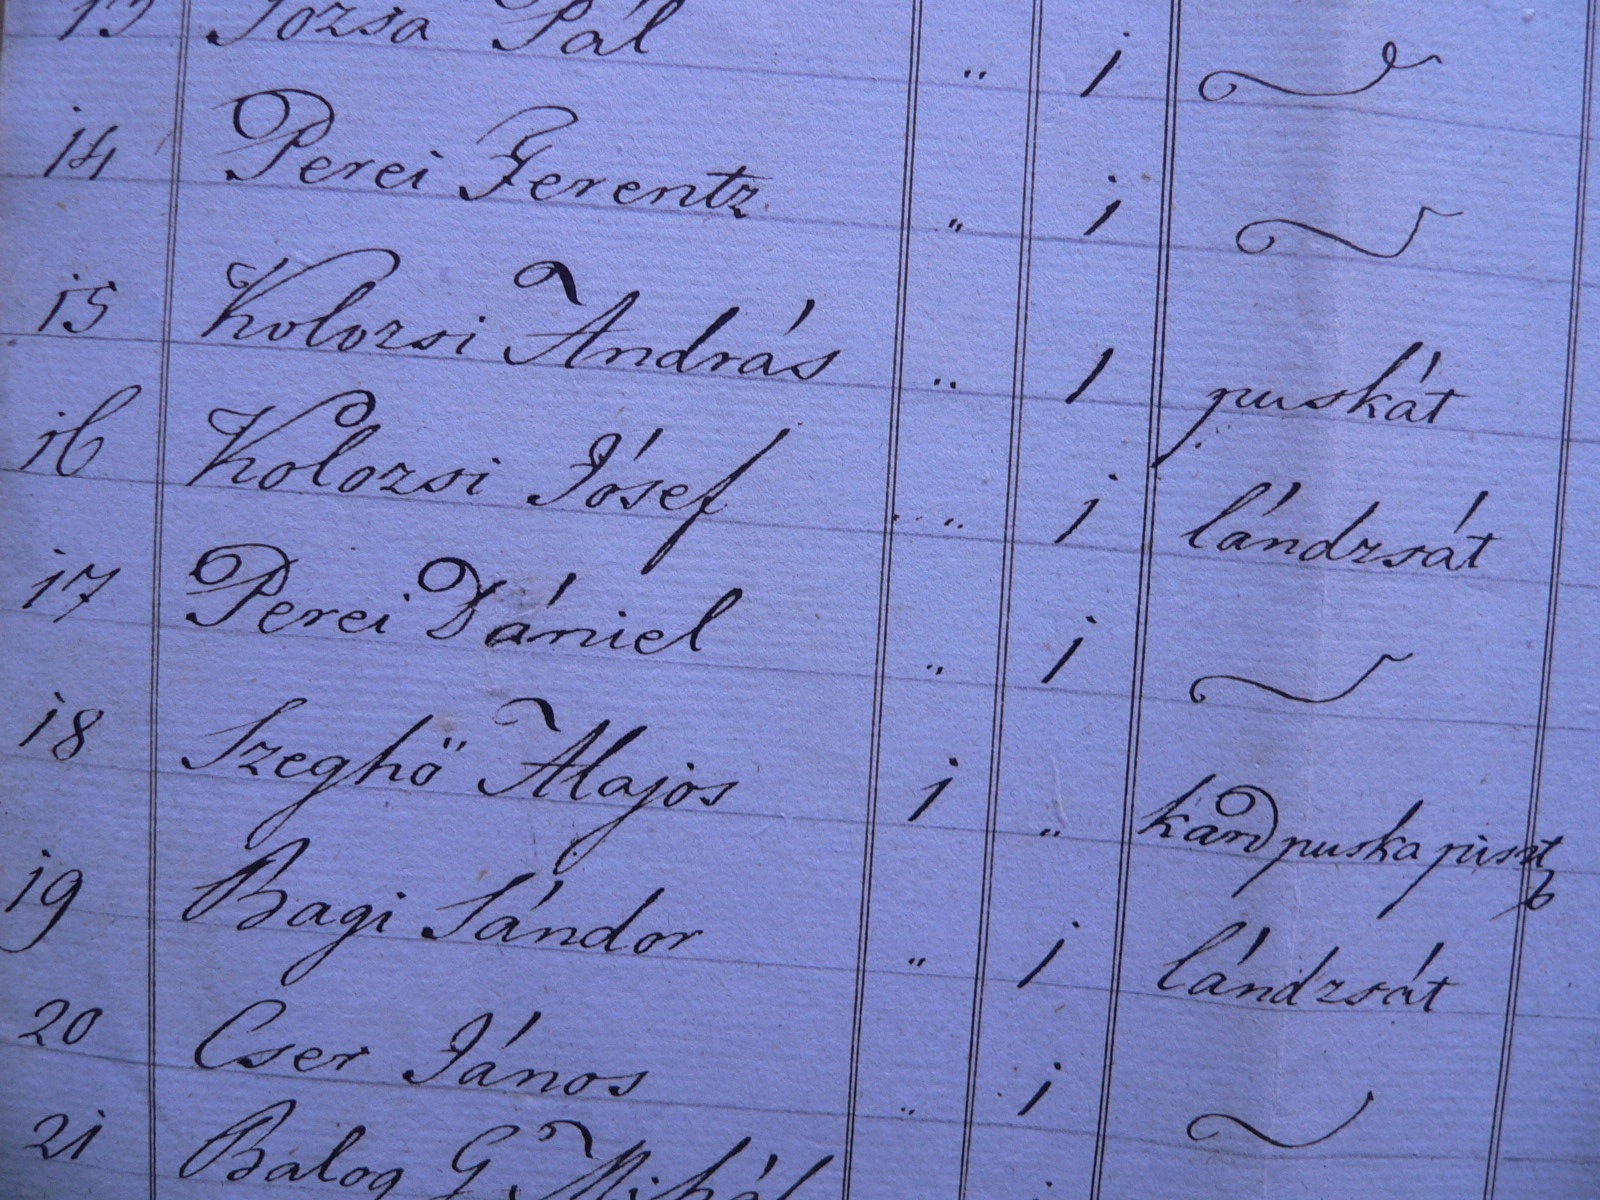 13 Józsa Pál „ 1 ~
14 Perei Ferentz „ 1 ~
15 Kolozsi András „ 1 puskát
16 Kolozsi Jósef „ 1 lándzsát
17 Perei Dániel „ 1 ~
18 Szeghö Alajos 1 „ kard puska piszt
19 Bagi Sándor „ 1 lándzsát
20 Cser János „ 1 ~
21 Balog G Mihál